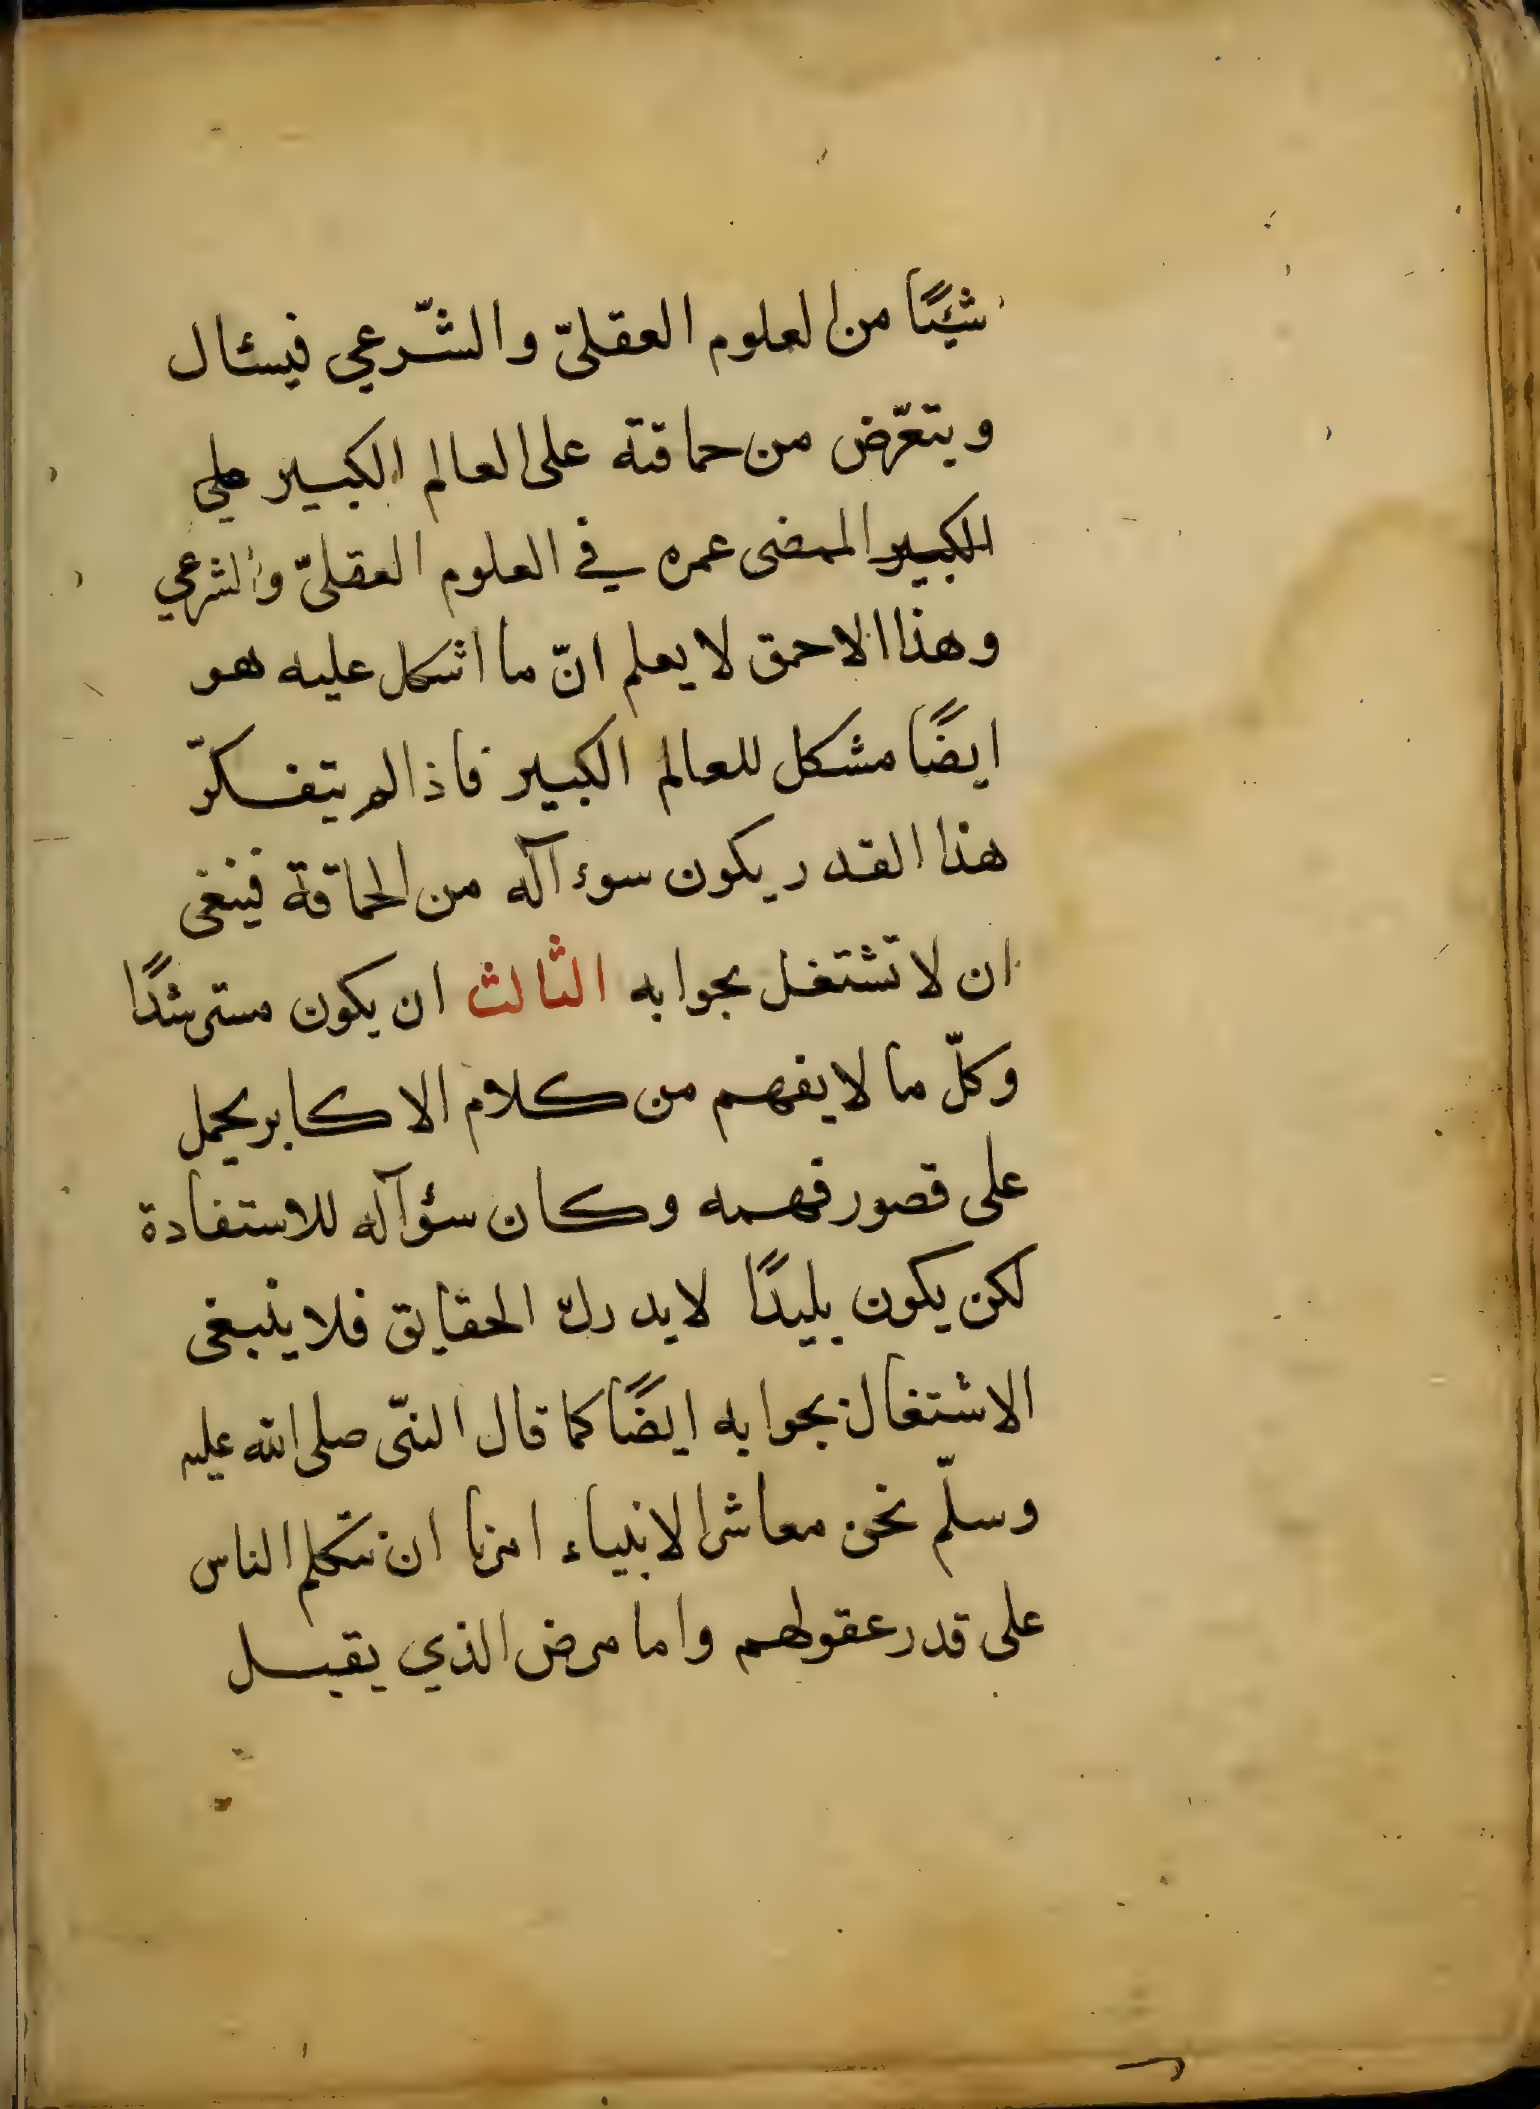 شيئًا من العلوم العقليّ والشّرعي فيسئال
ويتعرّض من حماقته على العالم الكبير على
الكبير الممضى عمره في العلوم العقليّ والشرعي
وهذا الاحمق لا يعلم انّ ما اشكل عليه هو
ايضًا مشكل للعالم الكبير فاذا لم يتفكرّ
هذا القدر يكون سوءآله من الحماقة فينبغى
ان لا تشتغل بجوابه الثالث ان يكون مسترشدًا
وكلّ ما لا يفهم من كلام الاكابر يحمل
على قصور فهمه وكان سؤآله للاستفادة
لكن يكون بليدًا لا يدرك الحقايق فلا ينبغى
الاشتغال بجوابه ايضًا كما قال النبّى صلى الله عليه
وسلّم نحن معاشر الانبياء امرنا ان نتكلم الناس
على قدر عقولهم واما مرض الذي يقبل